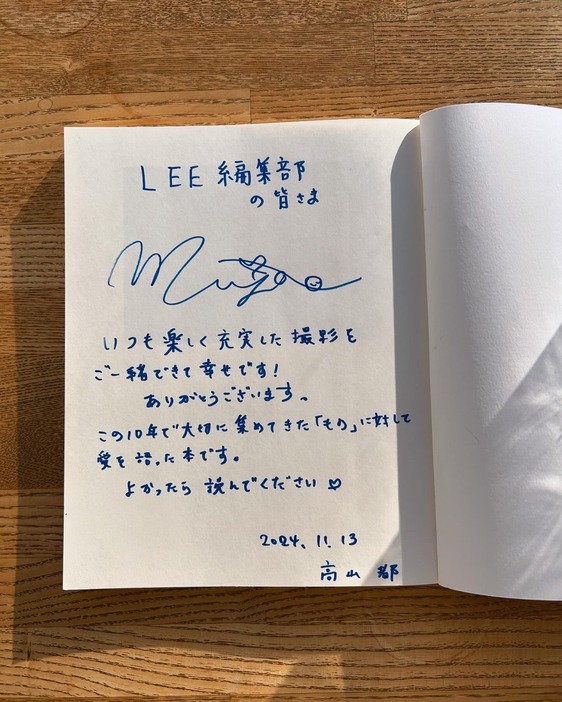 LEE 編集部
の皆さま
いつも楽しく充実した撮影を
ご一緒できて幸せです!
ありがとうございます。
この10年で大切に集めてきた「もの」に対して
愛を語った本です。
よかったら読んでください♡
2024. 11. 13
高山 都